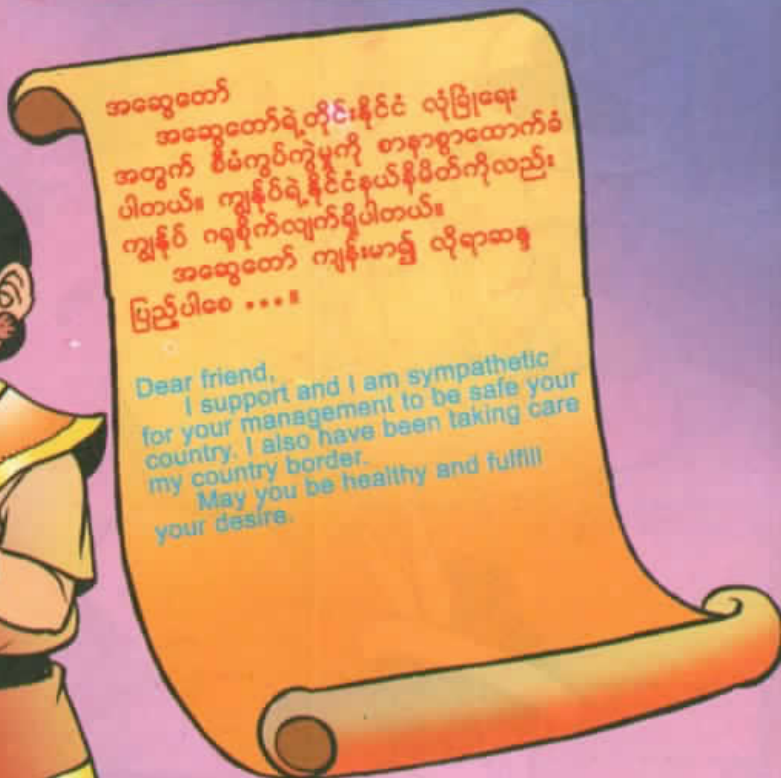 အဆွေတော်
အဆွေတော်ရဲ့တိုင်းနိုင်ငံ လုံခြုံရေး
အတွက် စီမံကွပ်ကဲမှုကို စာနာစွာထောက်ခံ
ပါတယ်။ ကျွန်ုပ်ရဲ့နိုင်ငံနယ်နိမိတ်ကိုလည်း
ကျွန်ုပ် ဂရုစိုက်လျက်ရှိပါတယ်။
အဆွေတော် ကျန်းမာ၍ လိုရာဆန္ဒ
ပြည့်ပါစေ ...။
Dear friend,
I support and I am sympathetic
for your management to be safe your
country. I also have been taking care
my country border.
May you be healthy and fulfill
your desire.